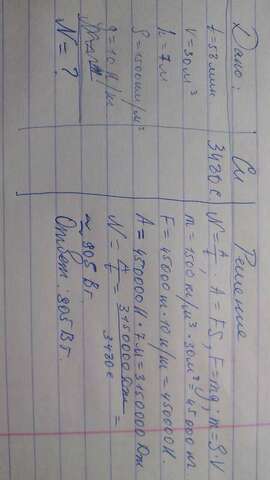 Дано:
t=58 мин
V=30м³
h=7м
ρ=1500кг/м³
g=10Н/кг
N=?
Си
3480с
Решение
N=A/t; A=FS; F=mg; m=ρ·V
m=1500кг/м³·30м³=45000кг.
F=45000кг·10Н/кг=450000Н.
A=450000Н·7м=3150000Дж
N=A/t=3150000Дж/3480с=
≈905Вт.
Ответ: 905Вт.